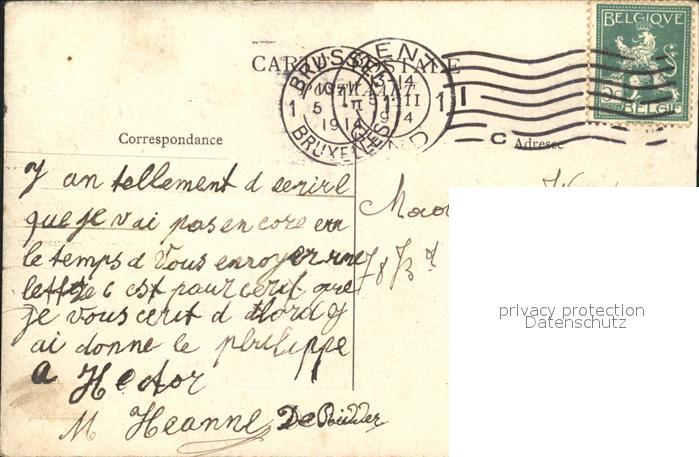 BELGIQVE
BELGIE
CARTE POSTALE
BRUSSEL
BRUXELLES
GENT
GAND
1914
Correspondance
Adresse
y an tellement d ecrire
que je vai pas encore eu
le temps d vous envoyer une
lettre c est pour cerit que
je vous cerit d abord g
ai donne le philippe
a Hector
M Heanne De Ridder
privacy protection
Datenschutz